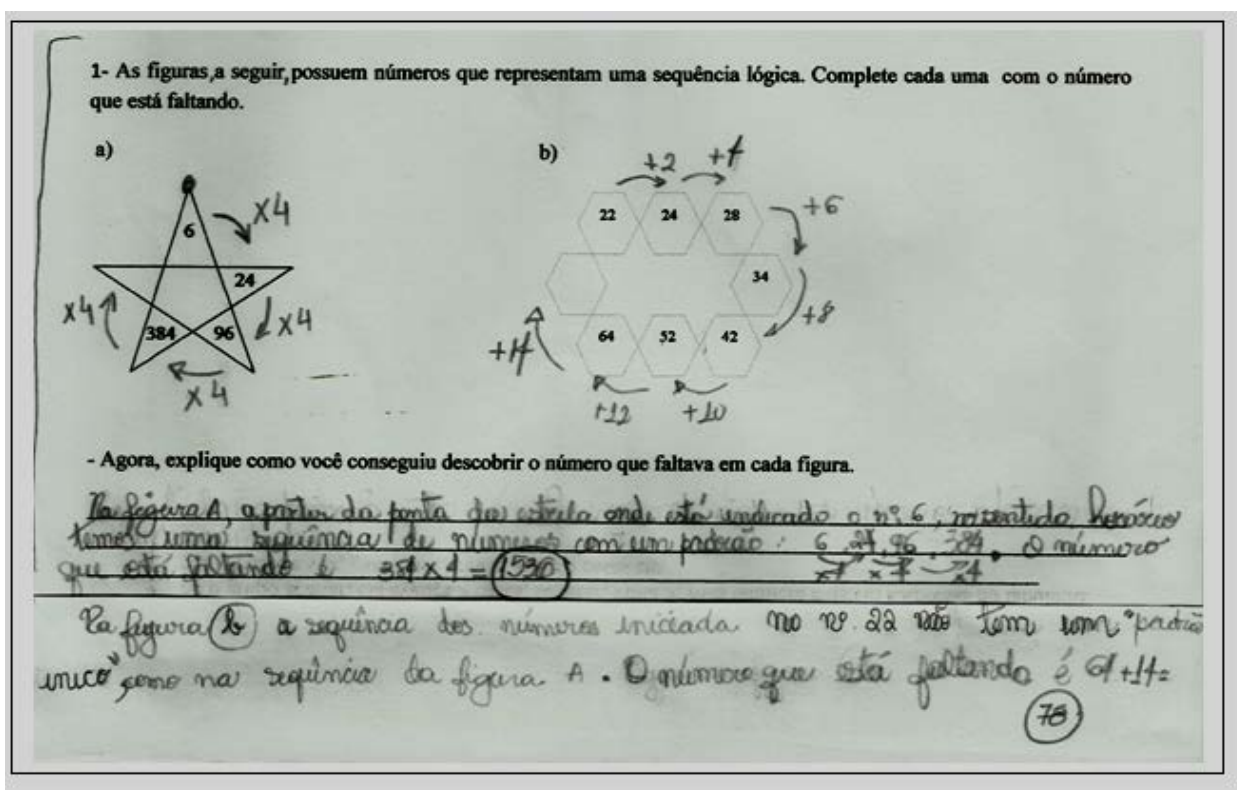 1- As figuras,a seguir,possuem números que representam uma sequência lógica. Complete cada uma com o número
que está faltando.
a)
b)
+2
+4
x4
22
24
28
+6
6
24
34
x4
x4
+8
384
96
64
52
42
+14
x4
+12
+10
- Agora, explique como você conseguiu descobrir o número que faltava em cada figura.
Na figura A, a partir da ponta da estrela onde está indicado o nº 6, no sentido horário
temos uma sequência de números com um padrão: 6, 24, 96, 384. O número
que está faltando é 384 x 4 = 1536
x4 x4 x4
Na figura b a sequência dos números iniciada no nº 22 não tem um "padrão
unico" como na sequência da figura A. O número que está faltando é 64+14=
78